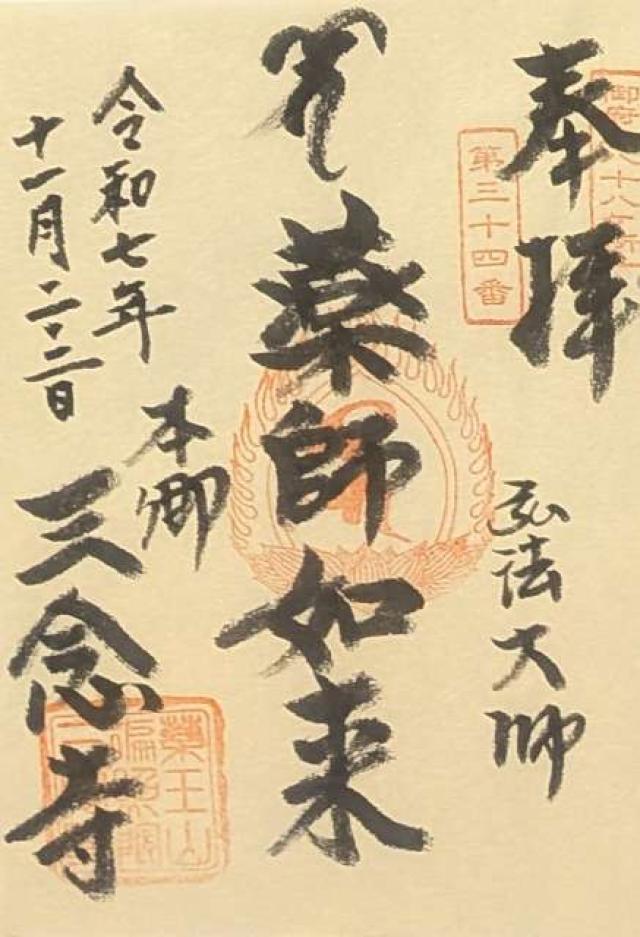 奉拝
第三十四番
弘法大師
薬師如来
令和七年
十一月二十二日
本郷
三念寺
薬王山
遍照院